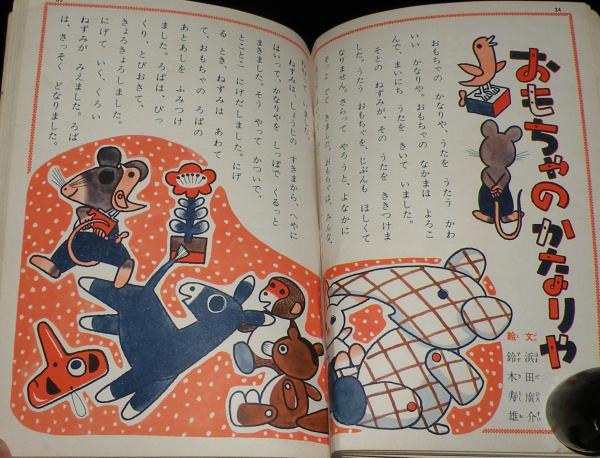 34
おもちゃのかなりや
文 浜田廣介
絵 鈴木寿雄
おもちゃの かなりや、うたを うたう かわ
いい かなりや。おもちゃの なかまは よろこ
んで、まいにち うたを きいて いました。
そとの ねずみが、その うたを ききつけま
した。うたう おもちゃを、じぶんも ほしくて
なりません。さらって やろうと、よなかに
そっと でて きました。おもちゃは、みんな、
ねむって いました。
ねずみは、しょうじの すきまから、へやに
はいって、かなりやを しっぽで くるっと
まきました。そう やって かついで、
とことこ にげだしました。にげ
る とき、ねずみは あわて
て、おもちゃの ろばの
あとあしを ふみつけ
ました。ろばは、びっ
くり、とびおきて、
きょろきょろしました。
にげて いく、くろい
ねずみが みえました。ろば
は、さっそく どなりました。